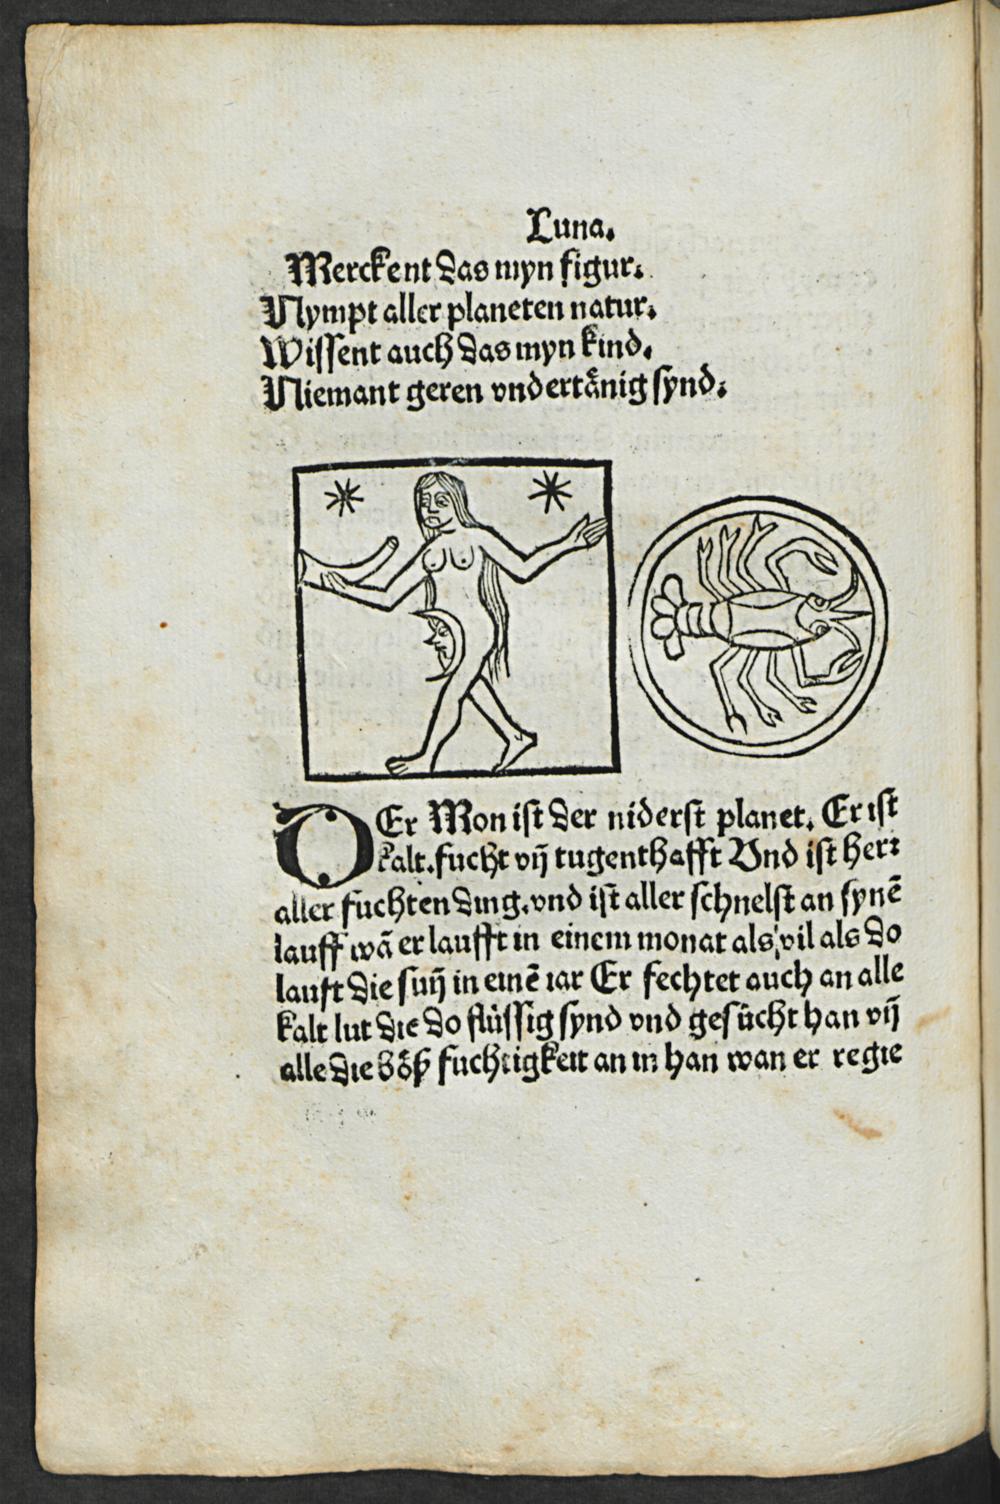 Luna.
Merckent das myn figur.
Nympt aller planeten natur.
Wissent auch das myn kind.
Niemant geren vndertånig synd.
DEr Mon ist der niderst planet. Er ist
kalt. fucht vn̄ tugenthafft Vnd ist herꝛ
aller fuchten ding. vnd ist aller schnelst an synē
lauff wā er laufft in einem monat als vil als do
lauft die sun̄ in einē iar Er fechtet auch an alle
kalt lut die do flüssig synd vnd gesücht han vn̄
alle die bôß fuchtigkeit an in han wan er regie